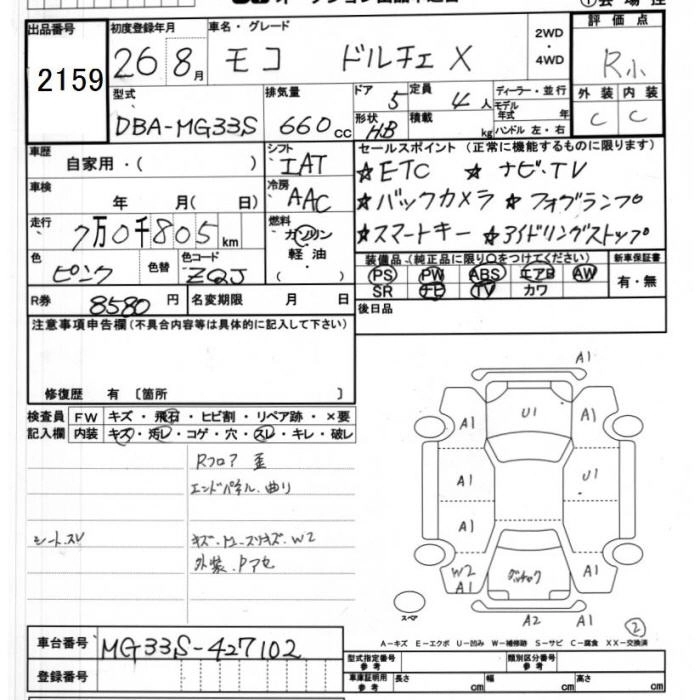 出品番号 2159
初度登録年月 26 8月
車名・グレード モコ ドルチェ X
2WD ・ 4WD
評価点 R小
型式 DBA-MG33S
排気量 660cc
ドア 5 定員 4人
形状 HB 積載 kg
ディーラー・並行
モデル年式 年
ハンドル 左・右
外装 内装
C C
車歴 自家用・( )
シフト IAT
セールスポイント (正常に機能するものに限ります)
☆ETC ☆ナビ・TV
車検 年 月( 日)
冷房 AAC
☆バックカメラ ☆フォグランプ
走行 7万0千805km
燃料 ガソリン 軽油
☆スマートキー ☆アイドリングストップ
色 ピンク 色替 色コード ZQJ
装備品 (純正品に限り○をつけてください) 新車保証書
PS PW ABS エアB AW 有・無
SR ナビ TV カワ
R券 8580円 名変期限 月 日
後日品
注意事項申告欄(不具合内容等は具体的に記入して下さい)
修復歴 有 〔箇所 〕
検査員 FW キズ・飛石・ヒビ割・リペア跡・×要
記入欄 内装 キズ・汚レ・コゲ・穴・スレ・キレ・破レ
Rフロア 歪
エンドパネル.曲り
シート.スレ
外装.Pアセ
A1
A1 U1 A1
A1 U1
A1
W2 A1 A1
スペア A2 A1
②
A-キズ E-エクボ U-凹み W-補修跡 S-サビ C-腐食 XX-交換済
車台番号 MG33S-427102
登録番号
型式指定番号 参考 類別区分番号 参考
車庫証明用 参考 長さ cm 幅 cm 高さ cm